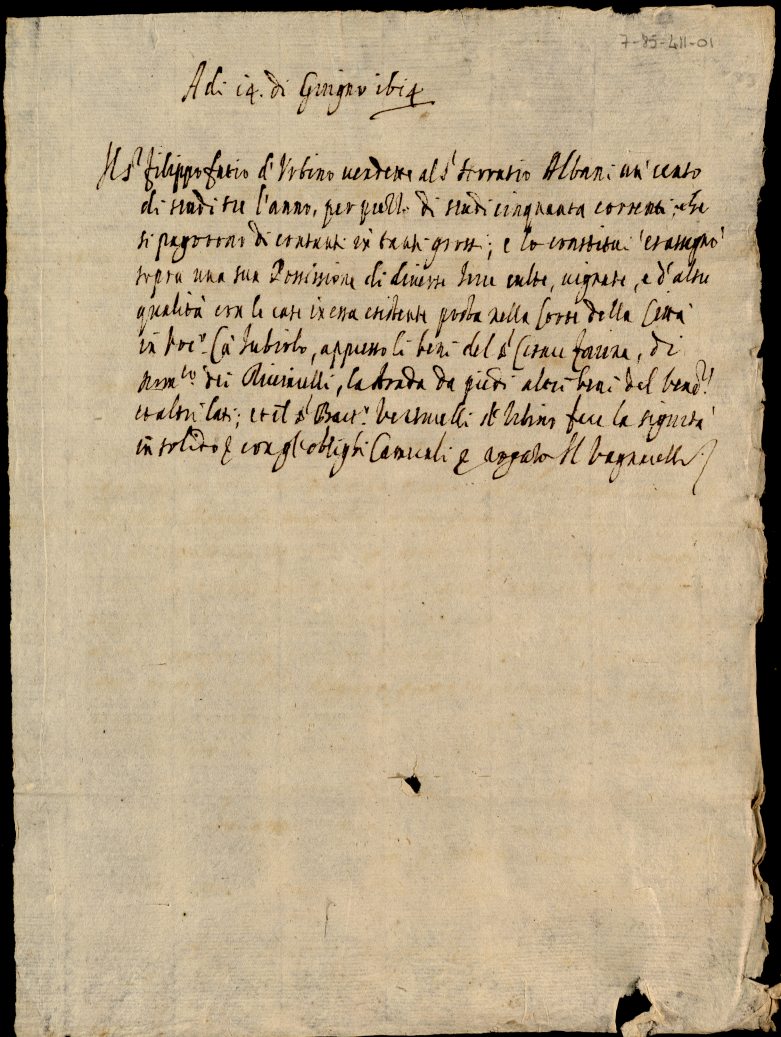 7-85-411-01
Adi 14. di Giugno 1614
Il sr. Filippo fatio d'Urbino vendette al sr. Horratio Albani un' cento
di scudi tre l'anno, per prezzo di scudi cinquanta correnti, che
si pagorono di contanti in tanti grossi; e lo constitui' et assegno'
sopra una sua Possissione di diverse terre culte, vignate, e d'altre
qualità con le case in essa esistente posta nella Corte della Città
in voc.o Ca' , appresso li beni del sr. Cesare farina, di
dei , la strada da piedi altri beni del vend.re
et altri lati; et il sr. Batt.a d'Urbino fece la sigurtà
in solido e con gl'oblighi Camerali e rogato